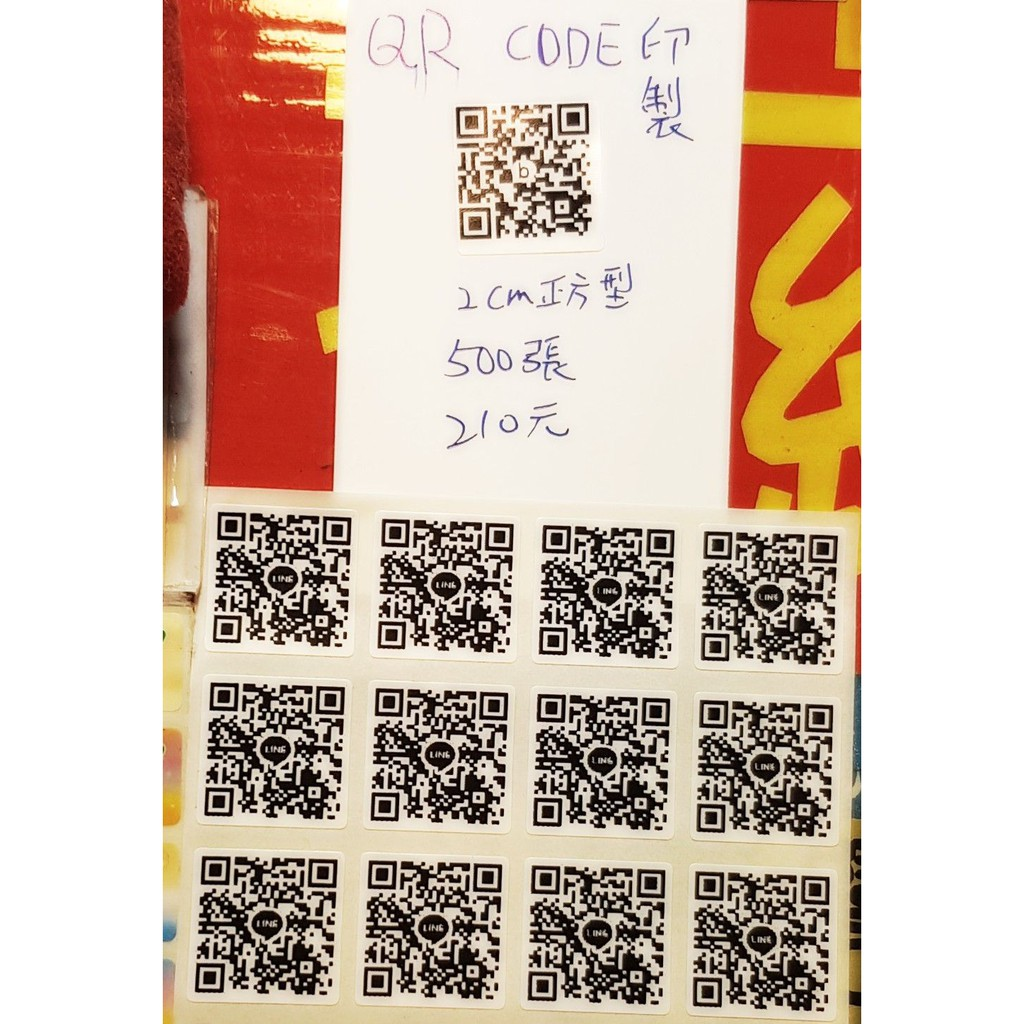 QR CODE印
製
b
2cm正方型
500張
210元
LINE LINE LINE LINE
LINE LINE LINE LINE
LINE LINE LINE LINE